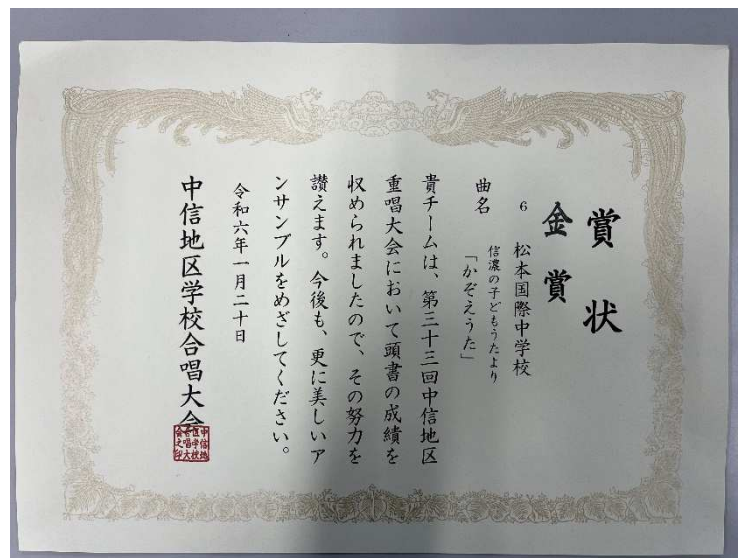 賞状
金賞
6 松本国際中学校
信濃の子どもうたより
曲名 「かぞえうた」
貴チームは、第三十三回中信地区
重唱大会において頭書の成績を
収められましたので、その努力を
讃えます。今後も、更に美しいア
ンサンブルをめざしてください。
令和六年一月二十日
中信地区学校合唱大会
中信地
区学校
合唱大
会之印